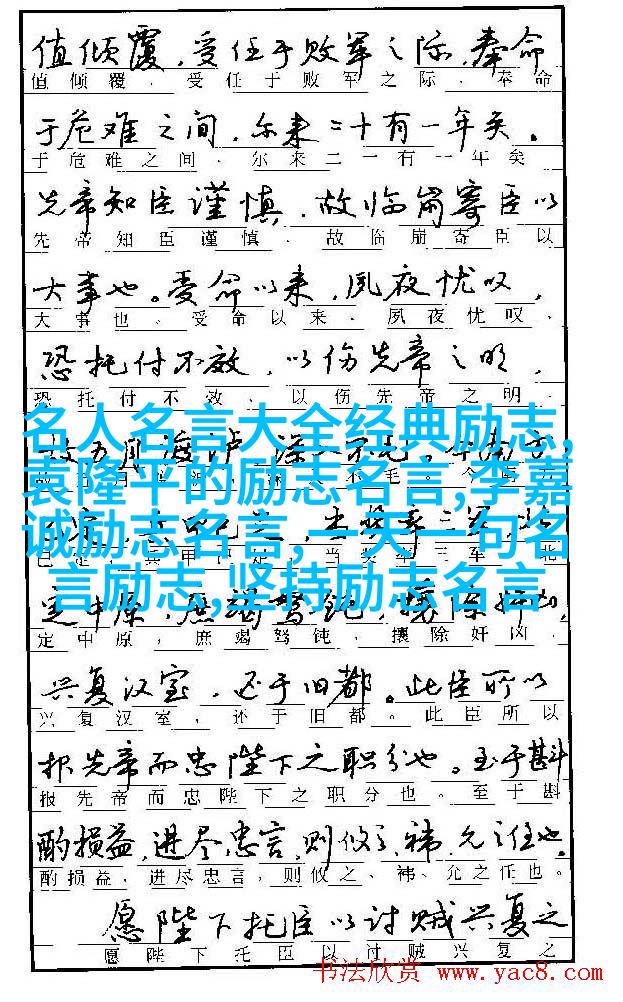 值倾覆，受任于败军之际，奉命
值倾覆，受任于败军之际，奉命
于危难之间，尔来二十有一年矣。
于危难之间，尔来二一有一年矣
先帝知臣谨慎，故临崩寄臣以
先帝知臣谨慎，故临崩寄臣以
大事也。受命以来，夙夜忧叹，
大事也。受命以来，夙夜忧叹，
恐托付不效，以伤先帝之明，
恐托付不效，以伤先帝之明，
名人名言大全经典励志,
袁隆平的励志名言,李嘉
诚励志名言,一天一句名
言励志,坚持励志名言
五月渡泸
定中原，庶竭驽钝，攘除奸凶，
定中原，庶竭驽钝，攘除奸凶，
兴复汉室，还于旧都。此臣所以
兴复汉室，还于旧都。此臣所以
报先帝而忠陛下之职分也。至于斟
报先帝而忠陛下之职分也。至于斟
酌损益，进尽忠言，则攸之、祎、允之任也。
酌损益，进尽忠言，则攸之、祎、允之任也。
愿陛下托臣以讨贼兴复之
愿陛下托臣以讨贼兴复之
书法欣赏 www.yac8.com